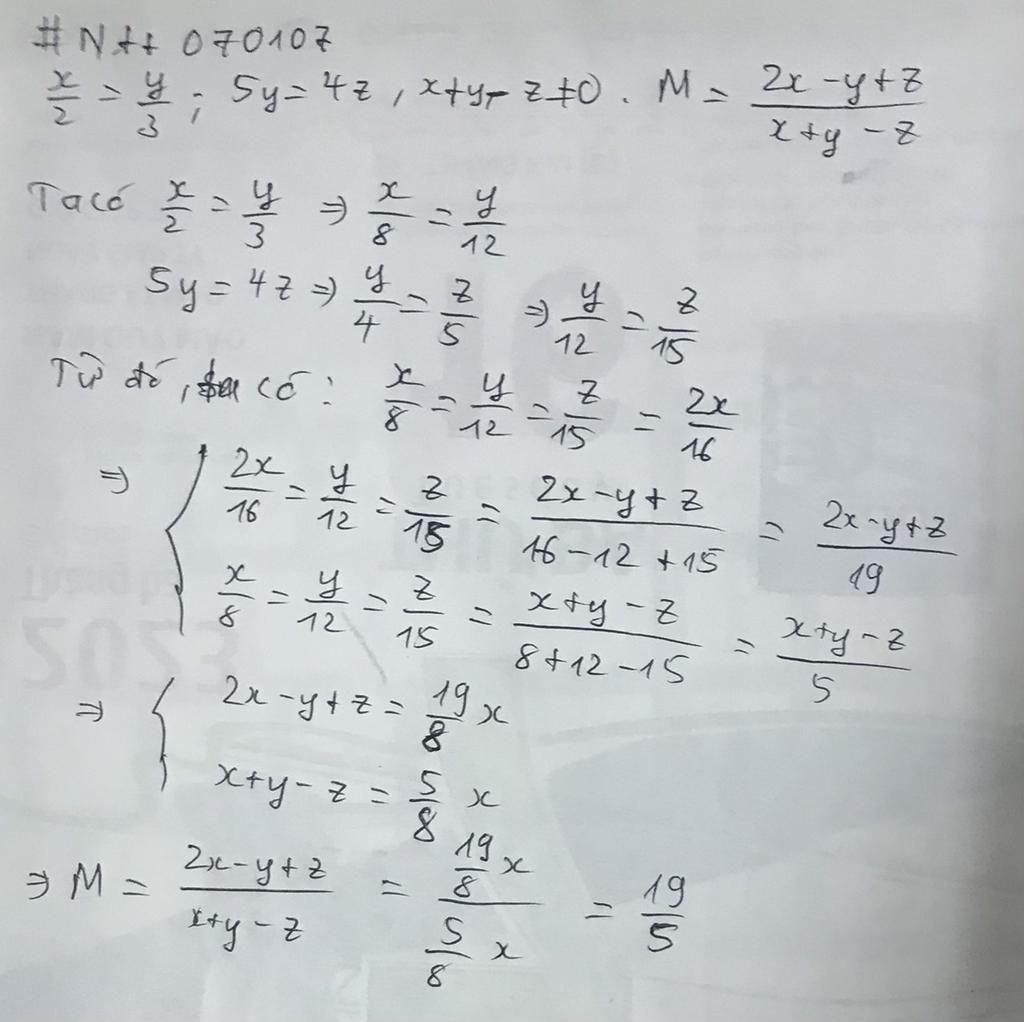 #Ntt 070107
x/2 = y/3 ; 5y = 4z , x+y-z≠0 . M = (2x-y+z)/(x+y-z)
Ta có x/2 = y/3 ⇒ x/8 = y/12
5y = 4z ⇒ y/4 = z/5 ⇒ y/12 = z/15
Từ đó, ta có : x/8 = y/12 = z/15 = 2x/16
⇒ { 2x/16 = y/12 = z/15 = (2x-y+z)/(16-12+15) = (2x-y+z)/19
x/8 = y/12 = z/15 = (x+y-z)/(8+12-15) = (x+y-z)/5
⇒ { 2x-y+z = 19/8 x
x+y-z = 5/8 x
⇒ M = (2x-y+z)/(x+y-z) = (19/8 x)/(5/8 x) = 19/5
2023